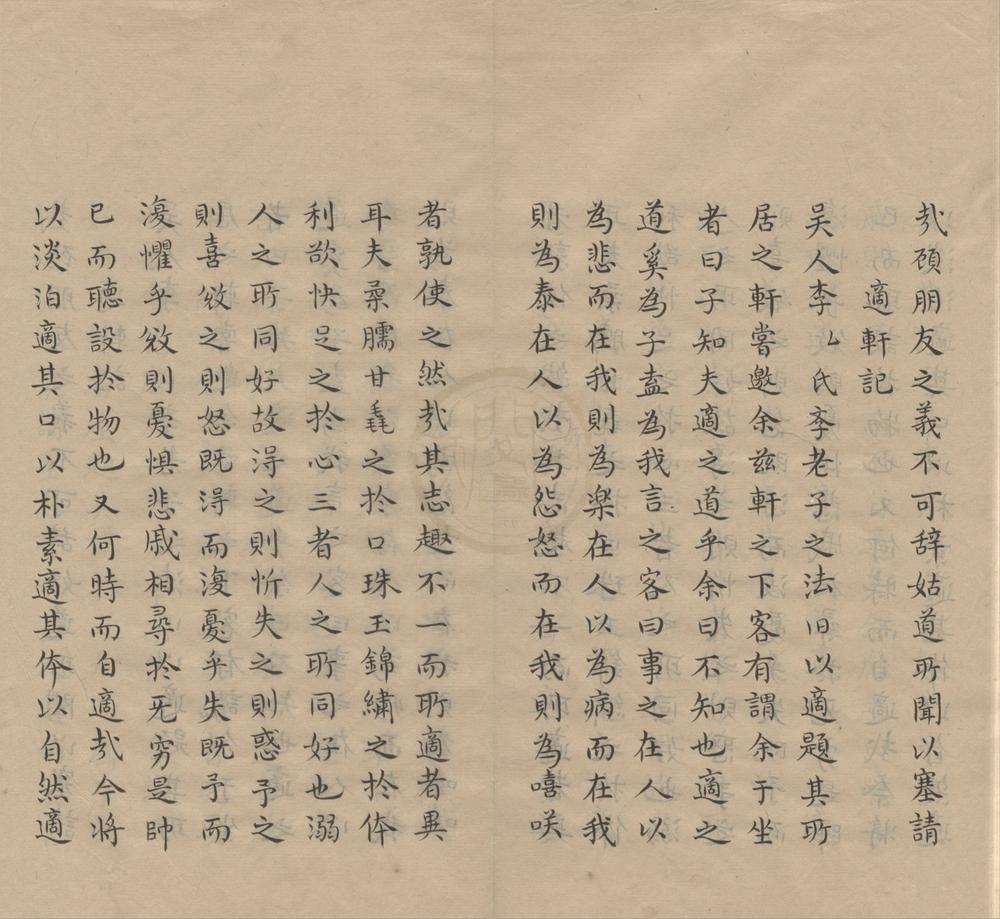 㢤顧朋友之義不可辞姑道所聞以塞請
適軒記
吳人李乀氏李老子之法因以適題其所
居之軒嘗邀余兹軒之下客有謂余于坐
者曰子知夫適之道乎余曰不知也適之
道奚為子盍為我言之客曰事之在人以
為悲而在我則為楽在人以為病而在我
則為泰在人以為怨怒而在我則為嘻咲
者孰使之然㢤其志趣不一而所適者異
耳夫桑臑甘毳之扵口珠玉錦繡之扵体
利欲快足之扵心三者人之所同好也溺
人之所同好故淂之則忻失之則惑予之
則喜敓之則怒既淂而復憂乎失既予而
復懼乎敓則憂惧悲戚相尋扵无窮是帥
已而聽設扵物也又何時而自適㢤今将
以淡泊適其口以朴素適其体以自然適